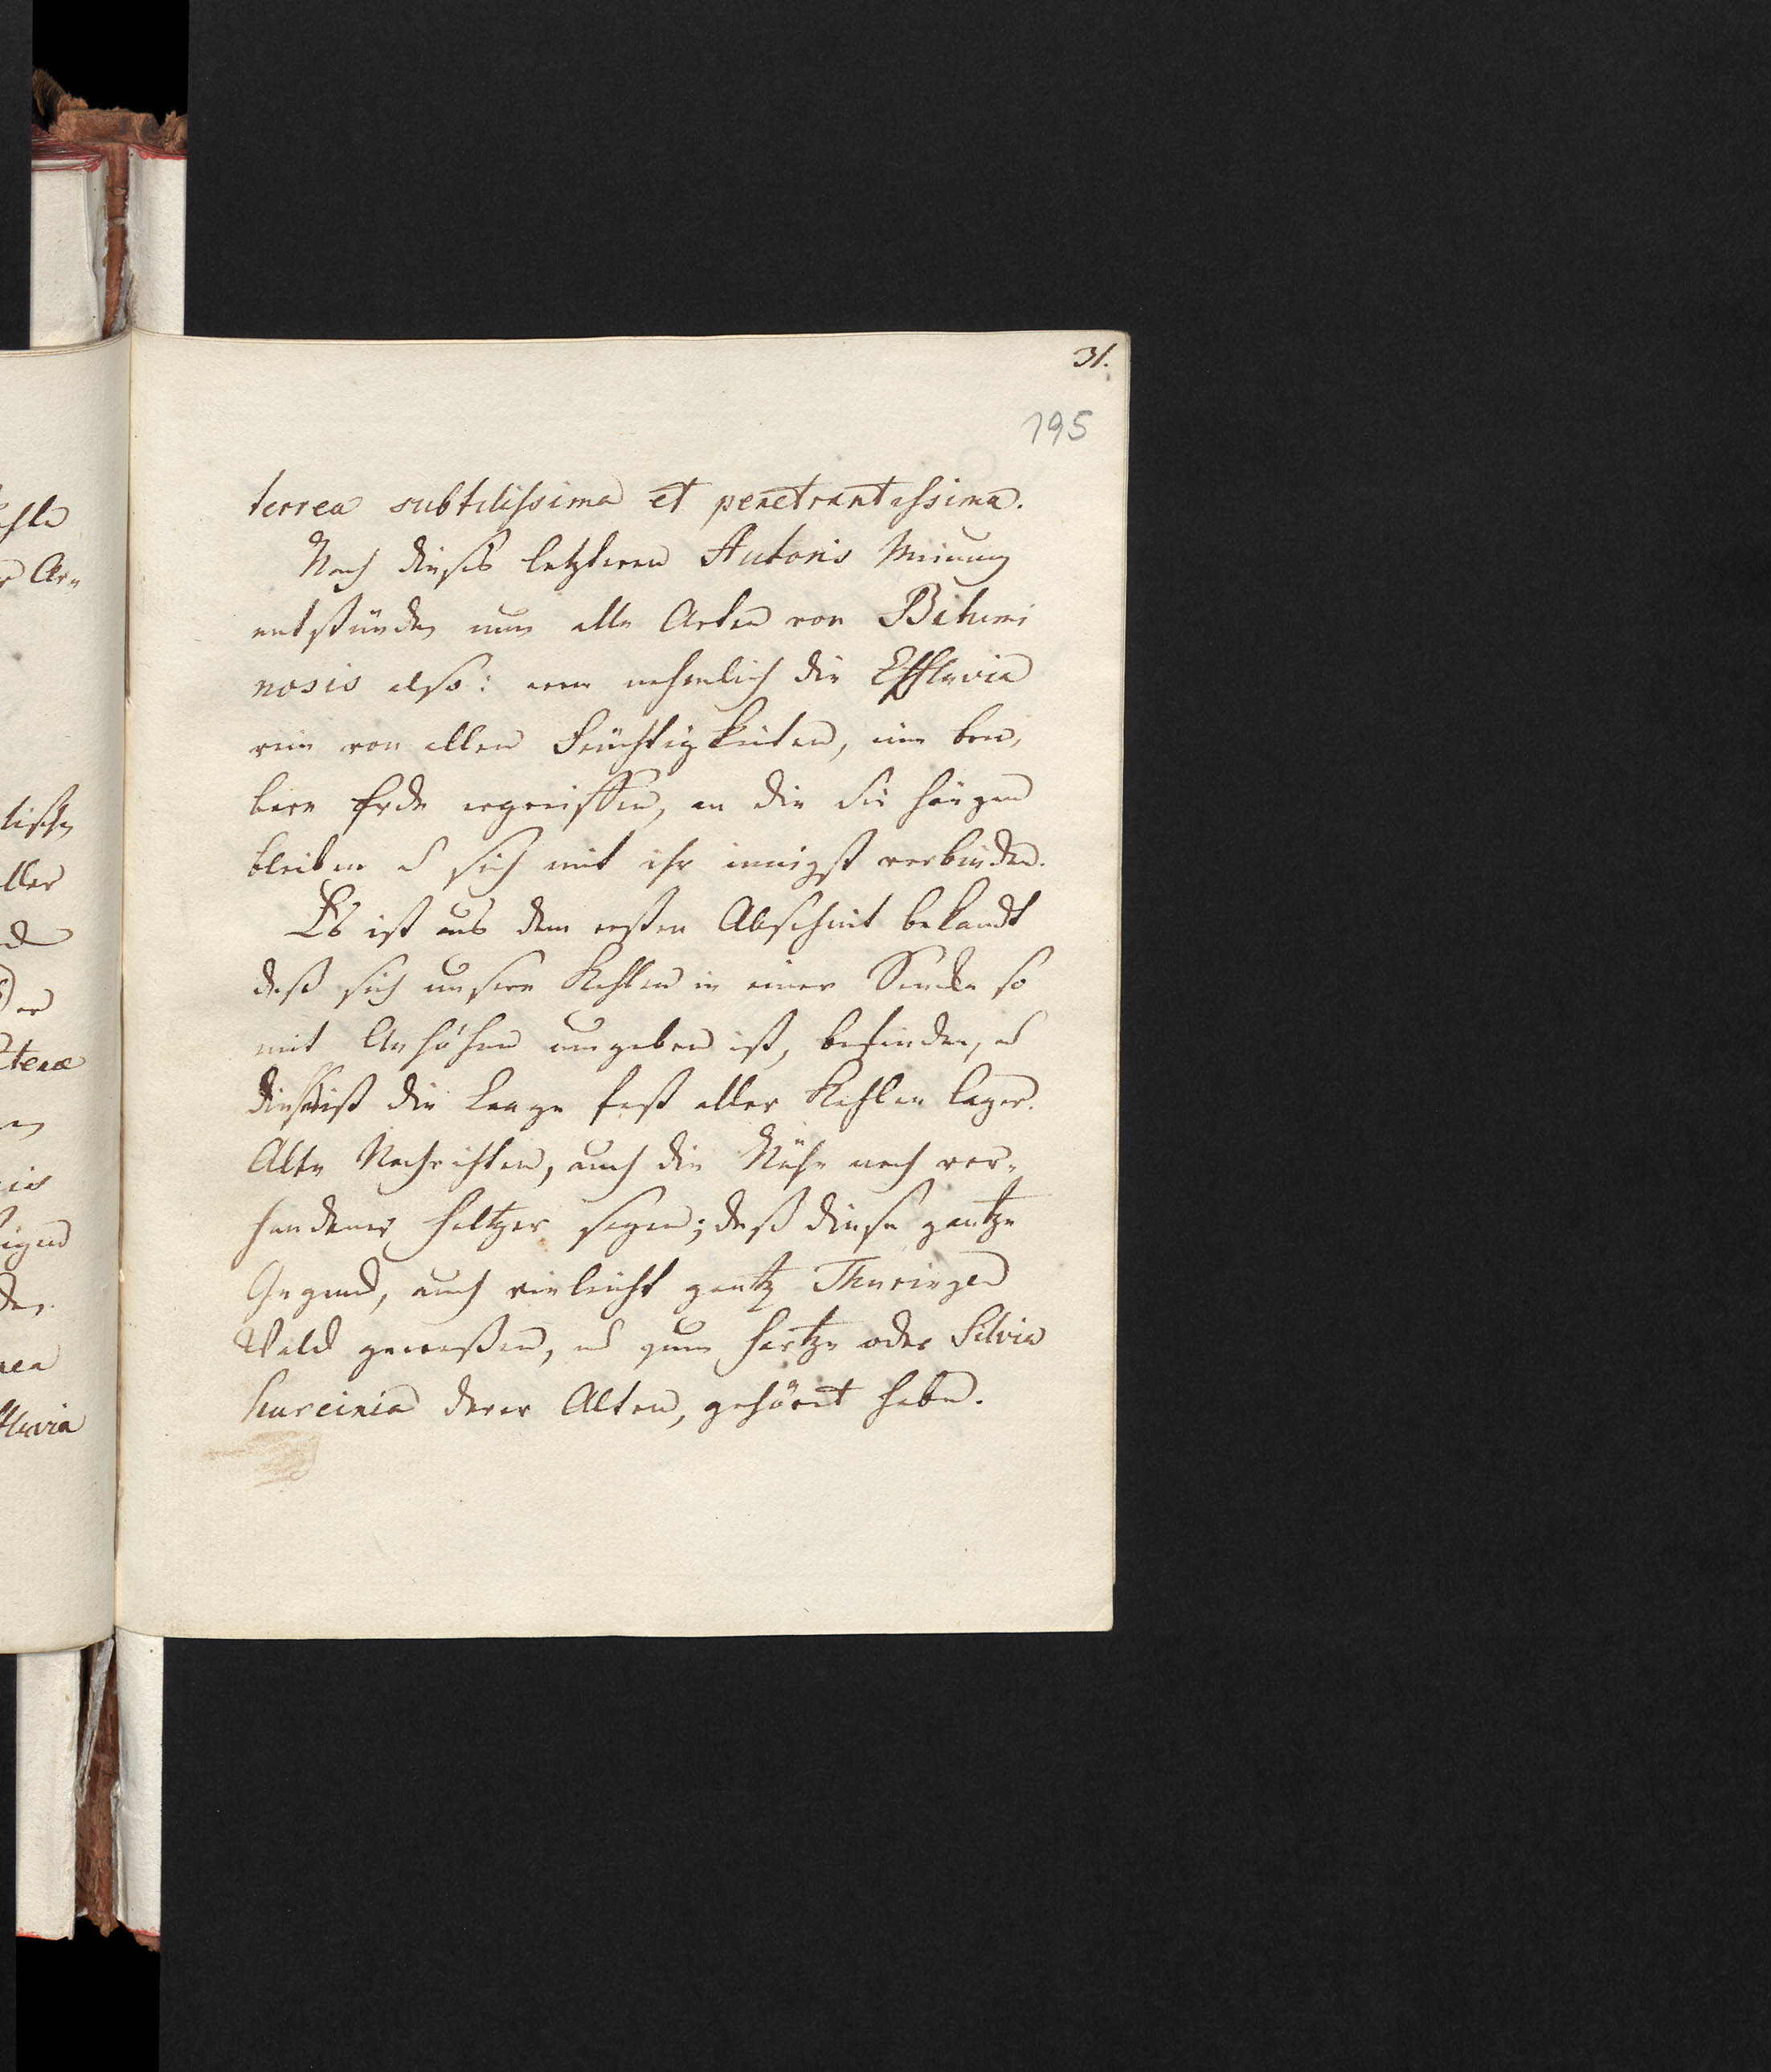 31.
195
terrea subtilissima et penetrantissima.
Nach dieses letzteren Autoris Meinung
entstünden nun alle Arten von Bitumi
nosis also: wenn nehmlich die Effluvia
rein von allen Feuchtigkeiten, eine
Erde ergreiffen, an die sie hängen
bleiben u sich mit ihr innigst verbinden.
Es ist aus dem ersten Abschnit bekandt
daß sich unsere Kohlen in einer Sencke so
mit Anhöhen umgeben ist, befinden, u
dieses ist die Laage fast aller Kohlen lager.
Alte Nachrichten, auch die Nähe noch vor-
handener Höltzer sagen; daß diese gantze
Gegend, auch vieleicht gantz Thuringen
Wald geweßen, und zum Hartze oder Silvia
hurcinia derer Alten, gehöret habe.